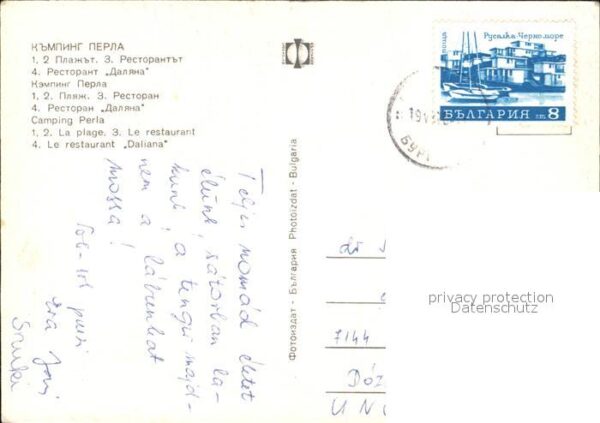 КЪМПИНГ ПЕРЛА
1, 2 Плажът. 3. Ресторантът
4. Ресторант „Даляна"
Кэмпинг Перла
1, 2. Пляж. 3. Ресторан
4. Ресторан „Даляна"
Camping Perla
1, 2. La plage. 3. Le restaurant
4. Le restaurant „Daliana"
Фотоиздат - България Photoizdat - Bulgaria
поща
Русалка-Черно море
БЪЛГАРИЯ ст 8
Teljes nomád életet
élünk, sátorban la-
kunk, a tenger majd-
nem a lábunkat
mossa!
puszi
dr
7144
Dóz
privacy protection
Datenschutz